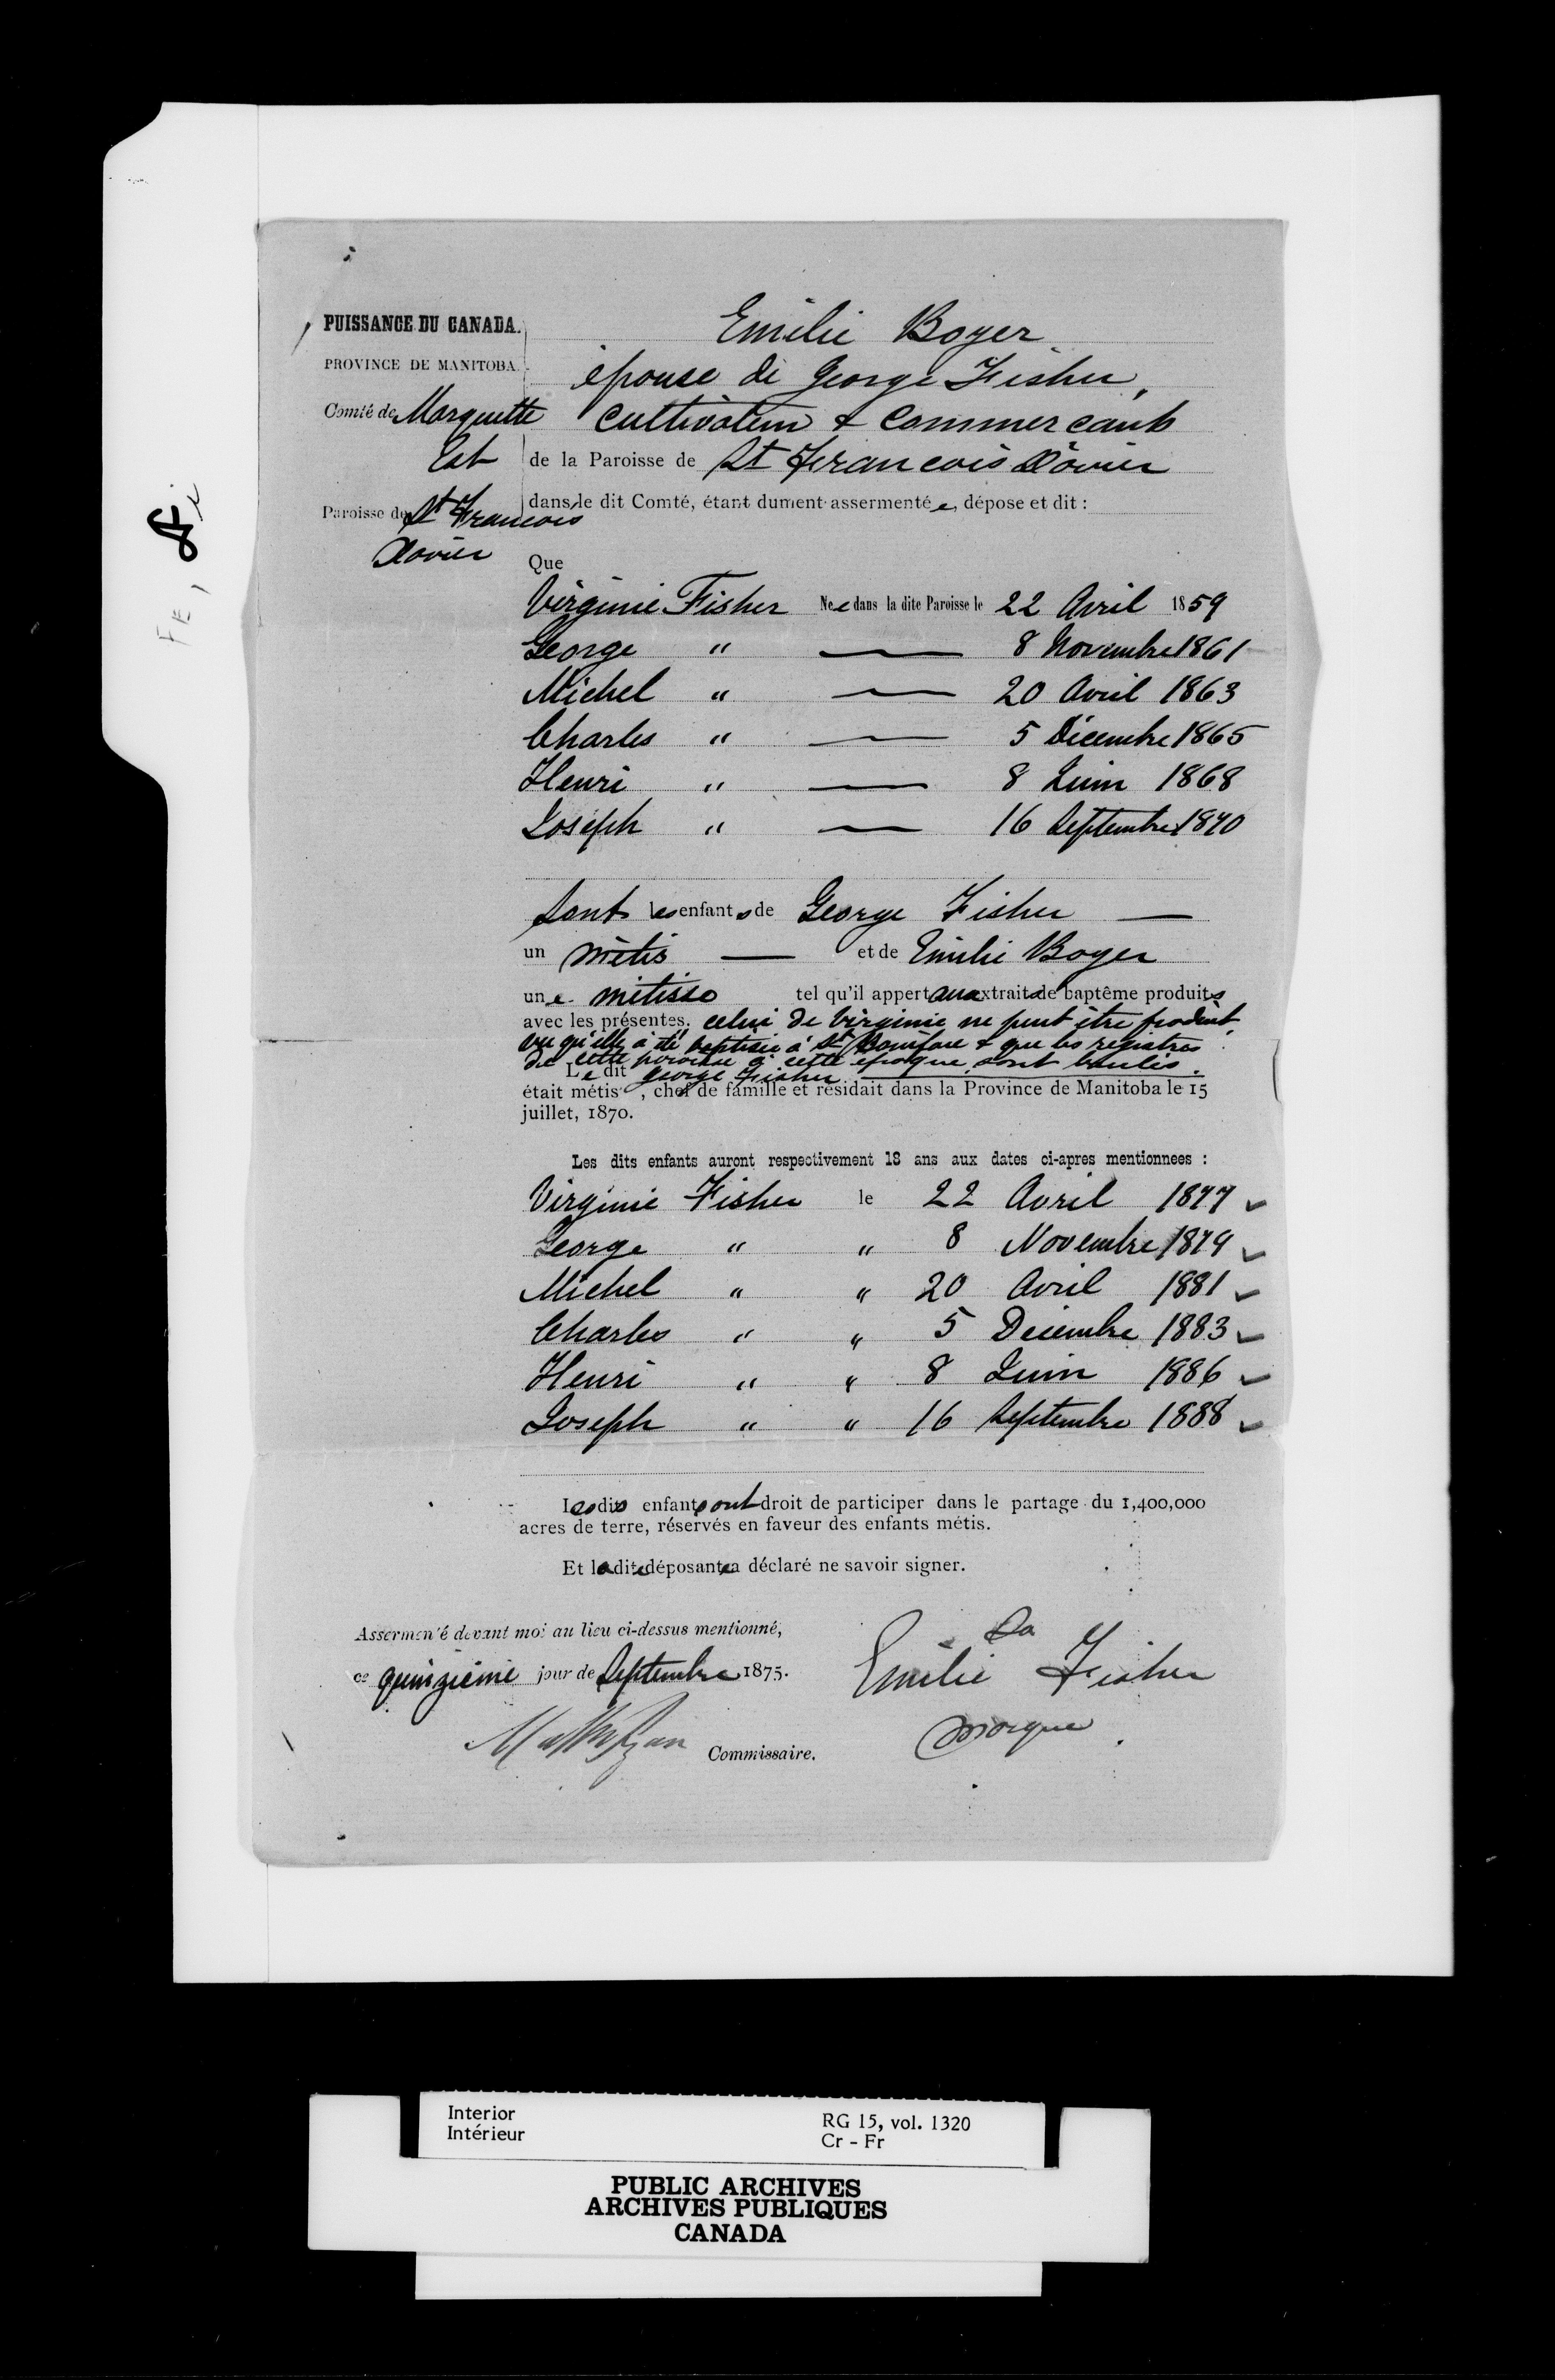 PUISSANCE DU CANADA.
PROVINCE DE MANITOBA.
Comté de Marquette
Est
Paroisse de St Francois
Xavier
Emilie Boyer
épouse de George Fisher,
cultivateur & Commercant
de la Paroisse de St Francois Xavier
dans le dit Comté, étant dument assermentée, dépose et dit :
Que
Virginie Fisher Nee dans la dite Paroisse le 22 Avril 1859
George " — 8 Novembre 1861
Michel " — 20 Avril 1863
Charles " — 5 Décembre 1865
Henri " — 8 Juin 1868
Joseph " — 16 Septembre 1870
Sont les enfants de George Fisher —
un Métis — et de Emilie Boyer
une métisse tel qu'il appert aux extraits de baptême produits
avec les présentes. celui de Virginie ne peut être produit,
vu qu'elle a été baptisée à St Boniface & que les registres
de cette paroisse à cette époque sont brulés.
Le dit George Fisher
était métis, chef de famille et résidait dans la Province de Manitoba le 15
juillet, 1870.
Les dits enfants auront respectivement 18 ans aux dates ci-apres mentionnees :
Virginie Fisher le 22 Avril 1877 ✓
George " " 8 Novembre 1879 ✓
Michel " " 20 Avril 1881 ✓
Charles " " 5 Decembre 1883 ✓
Henri " " 8 Juin 1886 ✓
Joseph " " 16 Septembre 1888 ✓
Les dits enfants ont droit de participer dans le partage du 1,400,000
acres de terre, réservés en faveur des enfants métis.
Et la dite déposante a déclaré ne savoir signer.
Assermenté devant moi au lieu ci-dessus mentionné,
ce quinzieme jour de Septembre 1875.
Commissaire.
Sa
Emilie Fisher
marque
Interior
Intérieur
RG 15, vol. 1320
Cr - Fr
PUBLIC ARCHIVES
ARCHIVES PUBLIQUES
CANADA